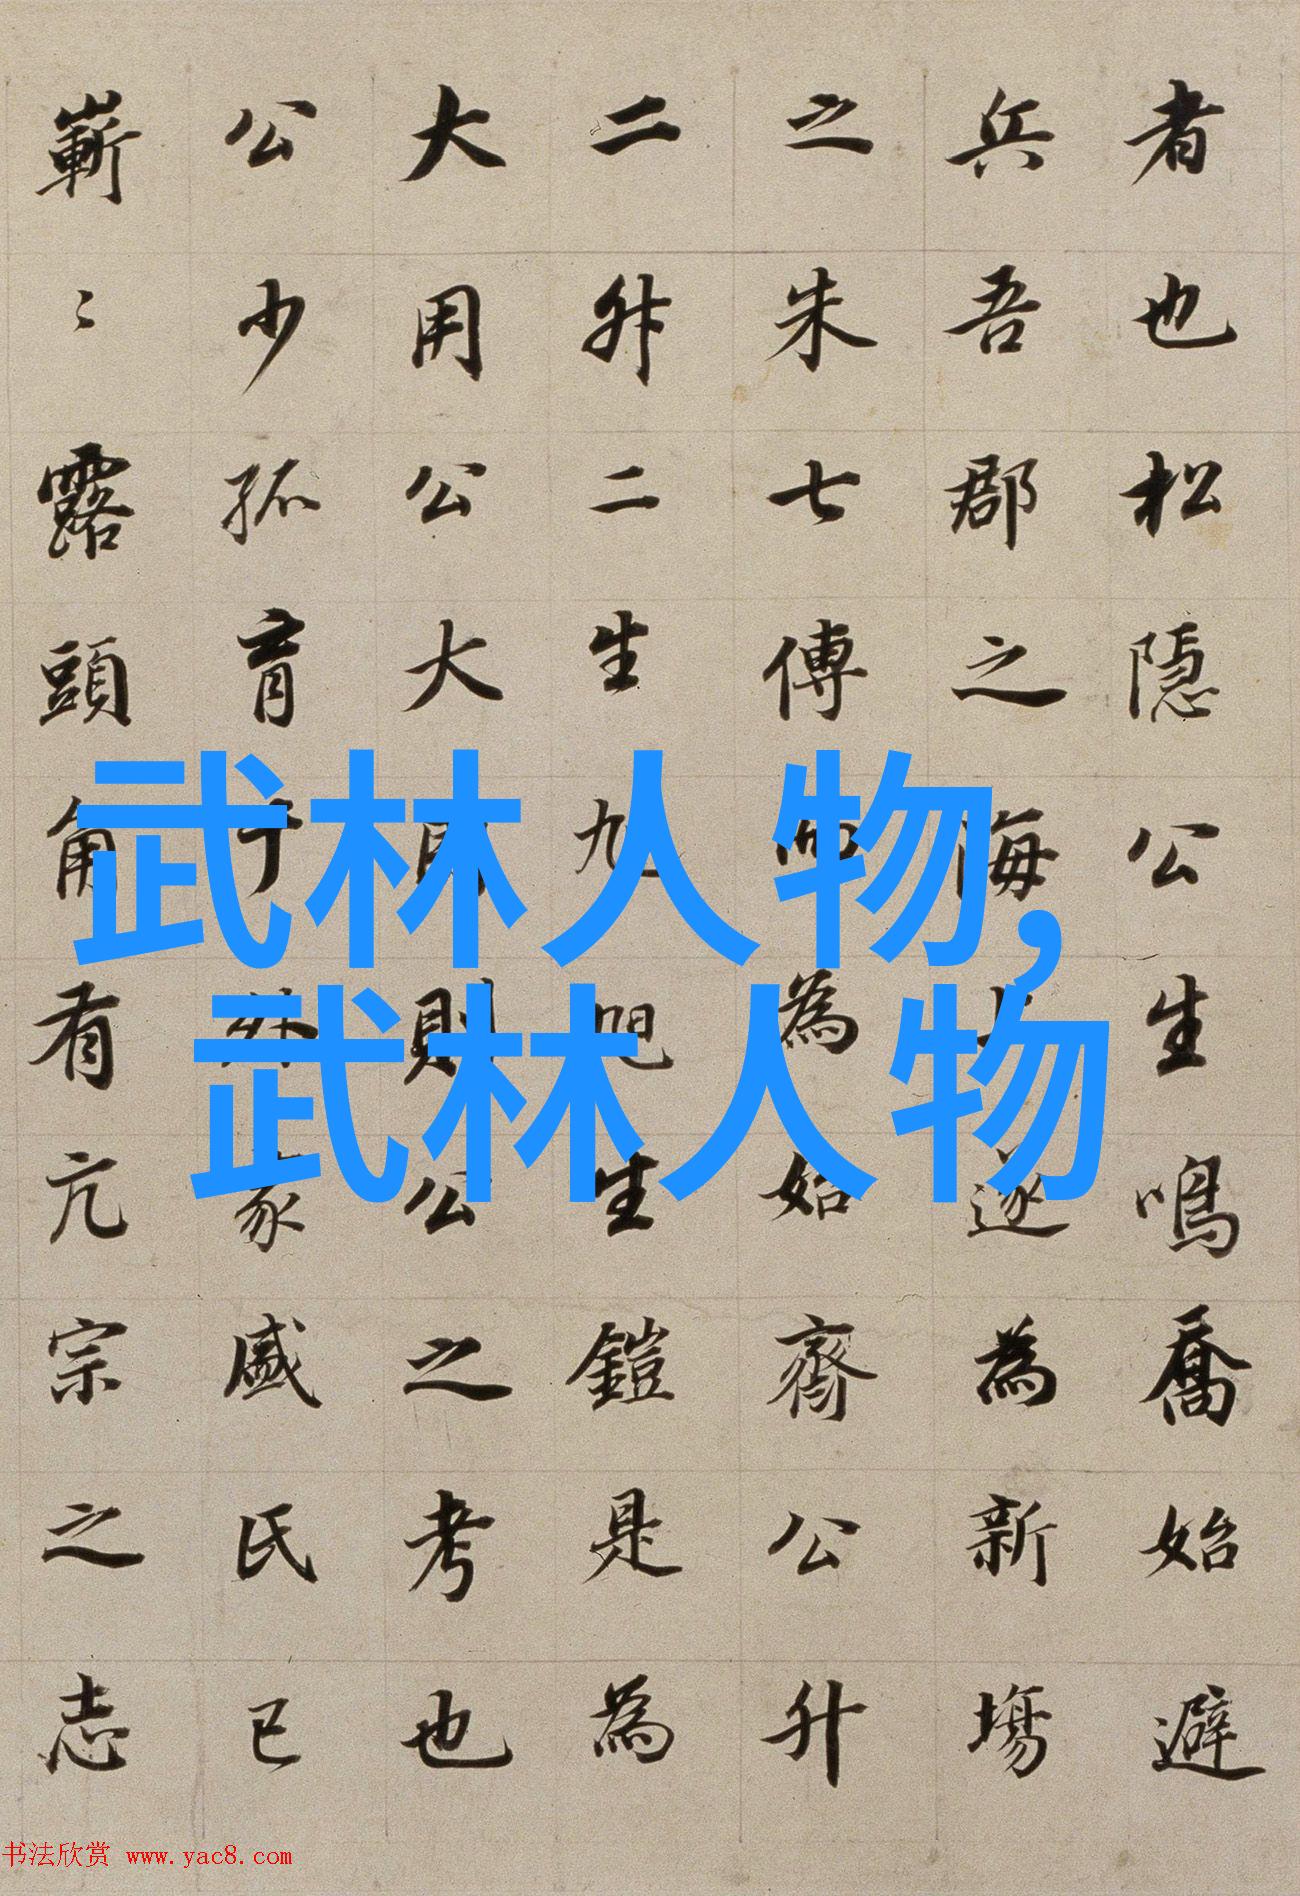 者也松隱公生鳴喬始避
兵吾郡之海上遂為新塲
之朱七傳而為始齊公升
二升二生旭旭生鎧是為
大用公大用則公之考也
公少孤育于外家戚氏已
嶄〻露頭角有亢宗之志
武林人物,
武林人物
书法欣赏 www.yac8.com